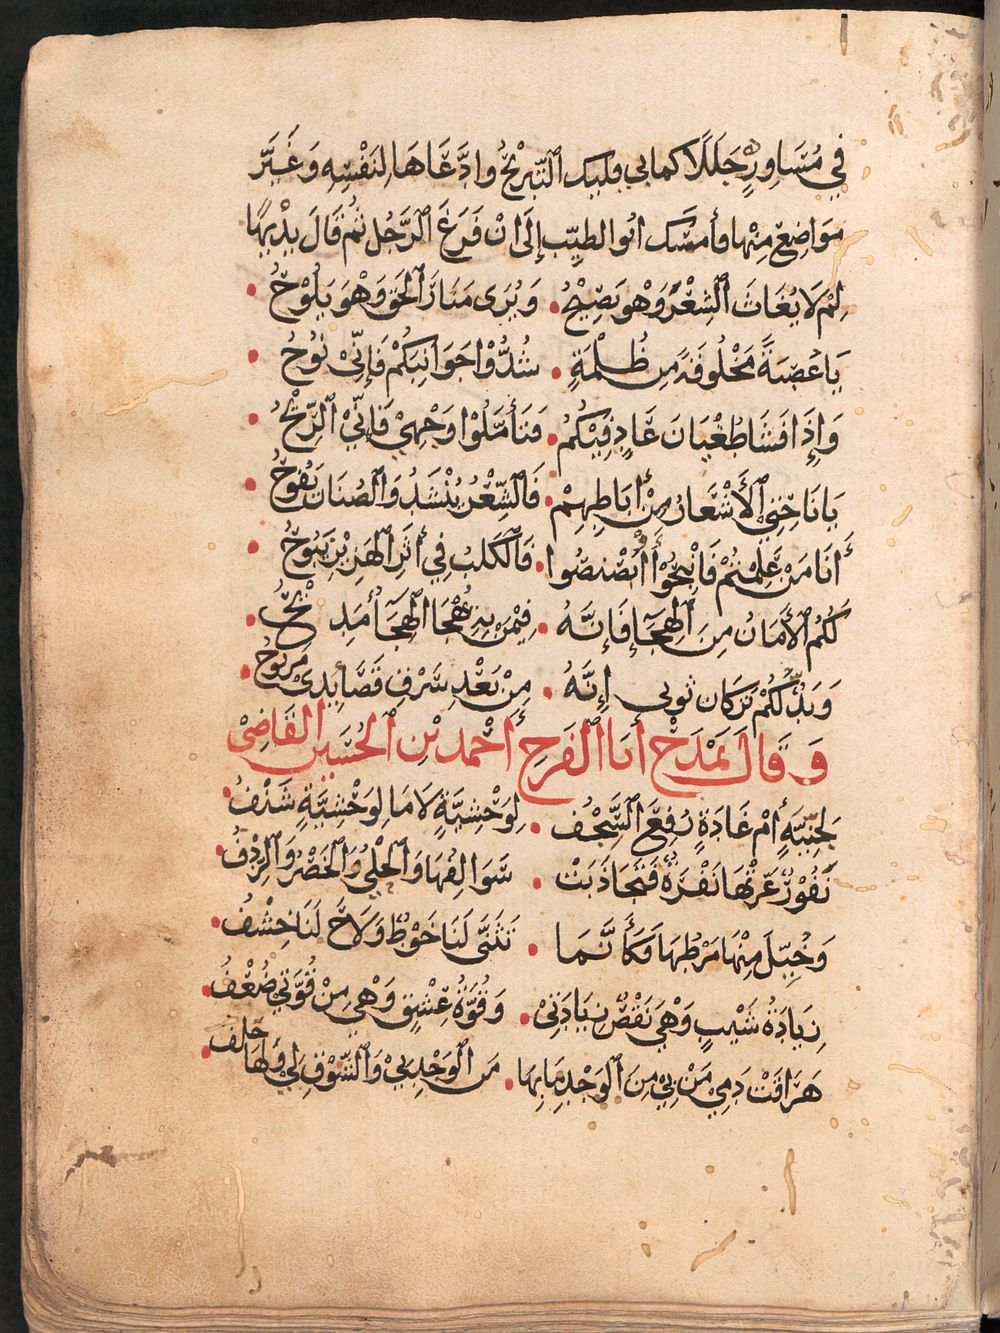 في مُسَاوِرٍ جَلَلًا كما بي فليك التَّبْرِيحُ وادَّعَاهَا لِنَفْسِهِ وَغَيَّرَ
مَوَاضِعَ مِنْهَا فأمسَك ابُو الطيّب إلَى ان فَرَغَ الرَّجُل ثم قَالَ بدْيهًا
لِمْ لَا يُغَاثُ الشِّعْرُ وَهْوَ يَصِيْحُ • وَيُرَى مَنَارُ الحَقِّ وَهْوَ يَلُوْحُ •
يَا عُصْبَةً مَخْلُوقَةً مِن ظُلْمَةٍ • شُدُّوْا جَوَانِبَكُمْ فَإِنّيْ نُوْحُ •
وَإِذَا فَشَا طُغْيَانُ عَادٍ فِيْكُمُ • فَتَأَمَّلُوْا وَجْهِيْ فَإِنّيْ الرِّيْحُ •
يَا نَاحِتِي الأَشْعَارِ مِنْ أَبَاطِهِمْ • فَالشِّعْرُ يُنْشَدُ وَالصُّنَانُ يَفُوحُ •
أَنَا مَنْ عَلِمْتُمْ فَانْبَحُوْا أَوْ بَصْبِصُوا • فَالكَلْبُ فِي أَثَرِ الهِزَبْرِ يَنُوحُ •
لَكُمُ الأَمَانُ مِنَ الهِجَآءِ فَإِنَّهُ • فِيْمَنْ بِهِ يُهْجَا الهِجَآءُ مَدِيْحُ •
وَيَدُلُّكُمْ تَركَان ثوبى إِنَّهُ • مِنْ بَعْدِ سَرْقِ قَصَايِدِى مربُوحُ •
وَقَالَ يَمْدَحُ أَبَا الفَرجِ أَحْمد بْن الحُسَين القَاضِيْ
لِجِنِّيَّةٍ أَمْ غَادَةٍ رُفِعَ السَّجْفُ • لِوَحْشِيَّةٍ لَا مَا لِوَحْشِيَّةٍ شَنْفُ •
نَفُوْرٌ عَرَتْهَا نَفْرَةٌ فَتَجَاذَبَتْ • سَوَالِفُهَا وَالحَلْيُ وَالخَصْرُ وَالرِّدْفُ •
وَخُيِّلَ مِنْهَا مَرْطُهَا فَكَأَنَّمَا • تَثَنَّى لَنَا خَوْطٌ وَلَاحَ لَنَا خِشْفُ •
زِيَادَةُ شَيْبٍ وَهْيَ نَقْصُ زِيَادَتِيْ • وَقُوَّةُ عِشْقٍ وَهْيَ مِنْ قُوَّتِي ضُعْفُ •
هَرَاقَتْ دَمِي مَنْ بِي مِنَ الوَجْدِ مَا بِهَا • مَنِ الوَجْدِ بِيْ وَالشَّوْقِ لِي وَلَهَا حِلْفُ •